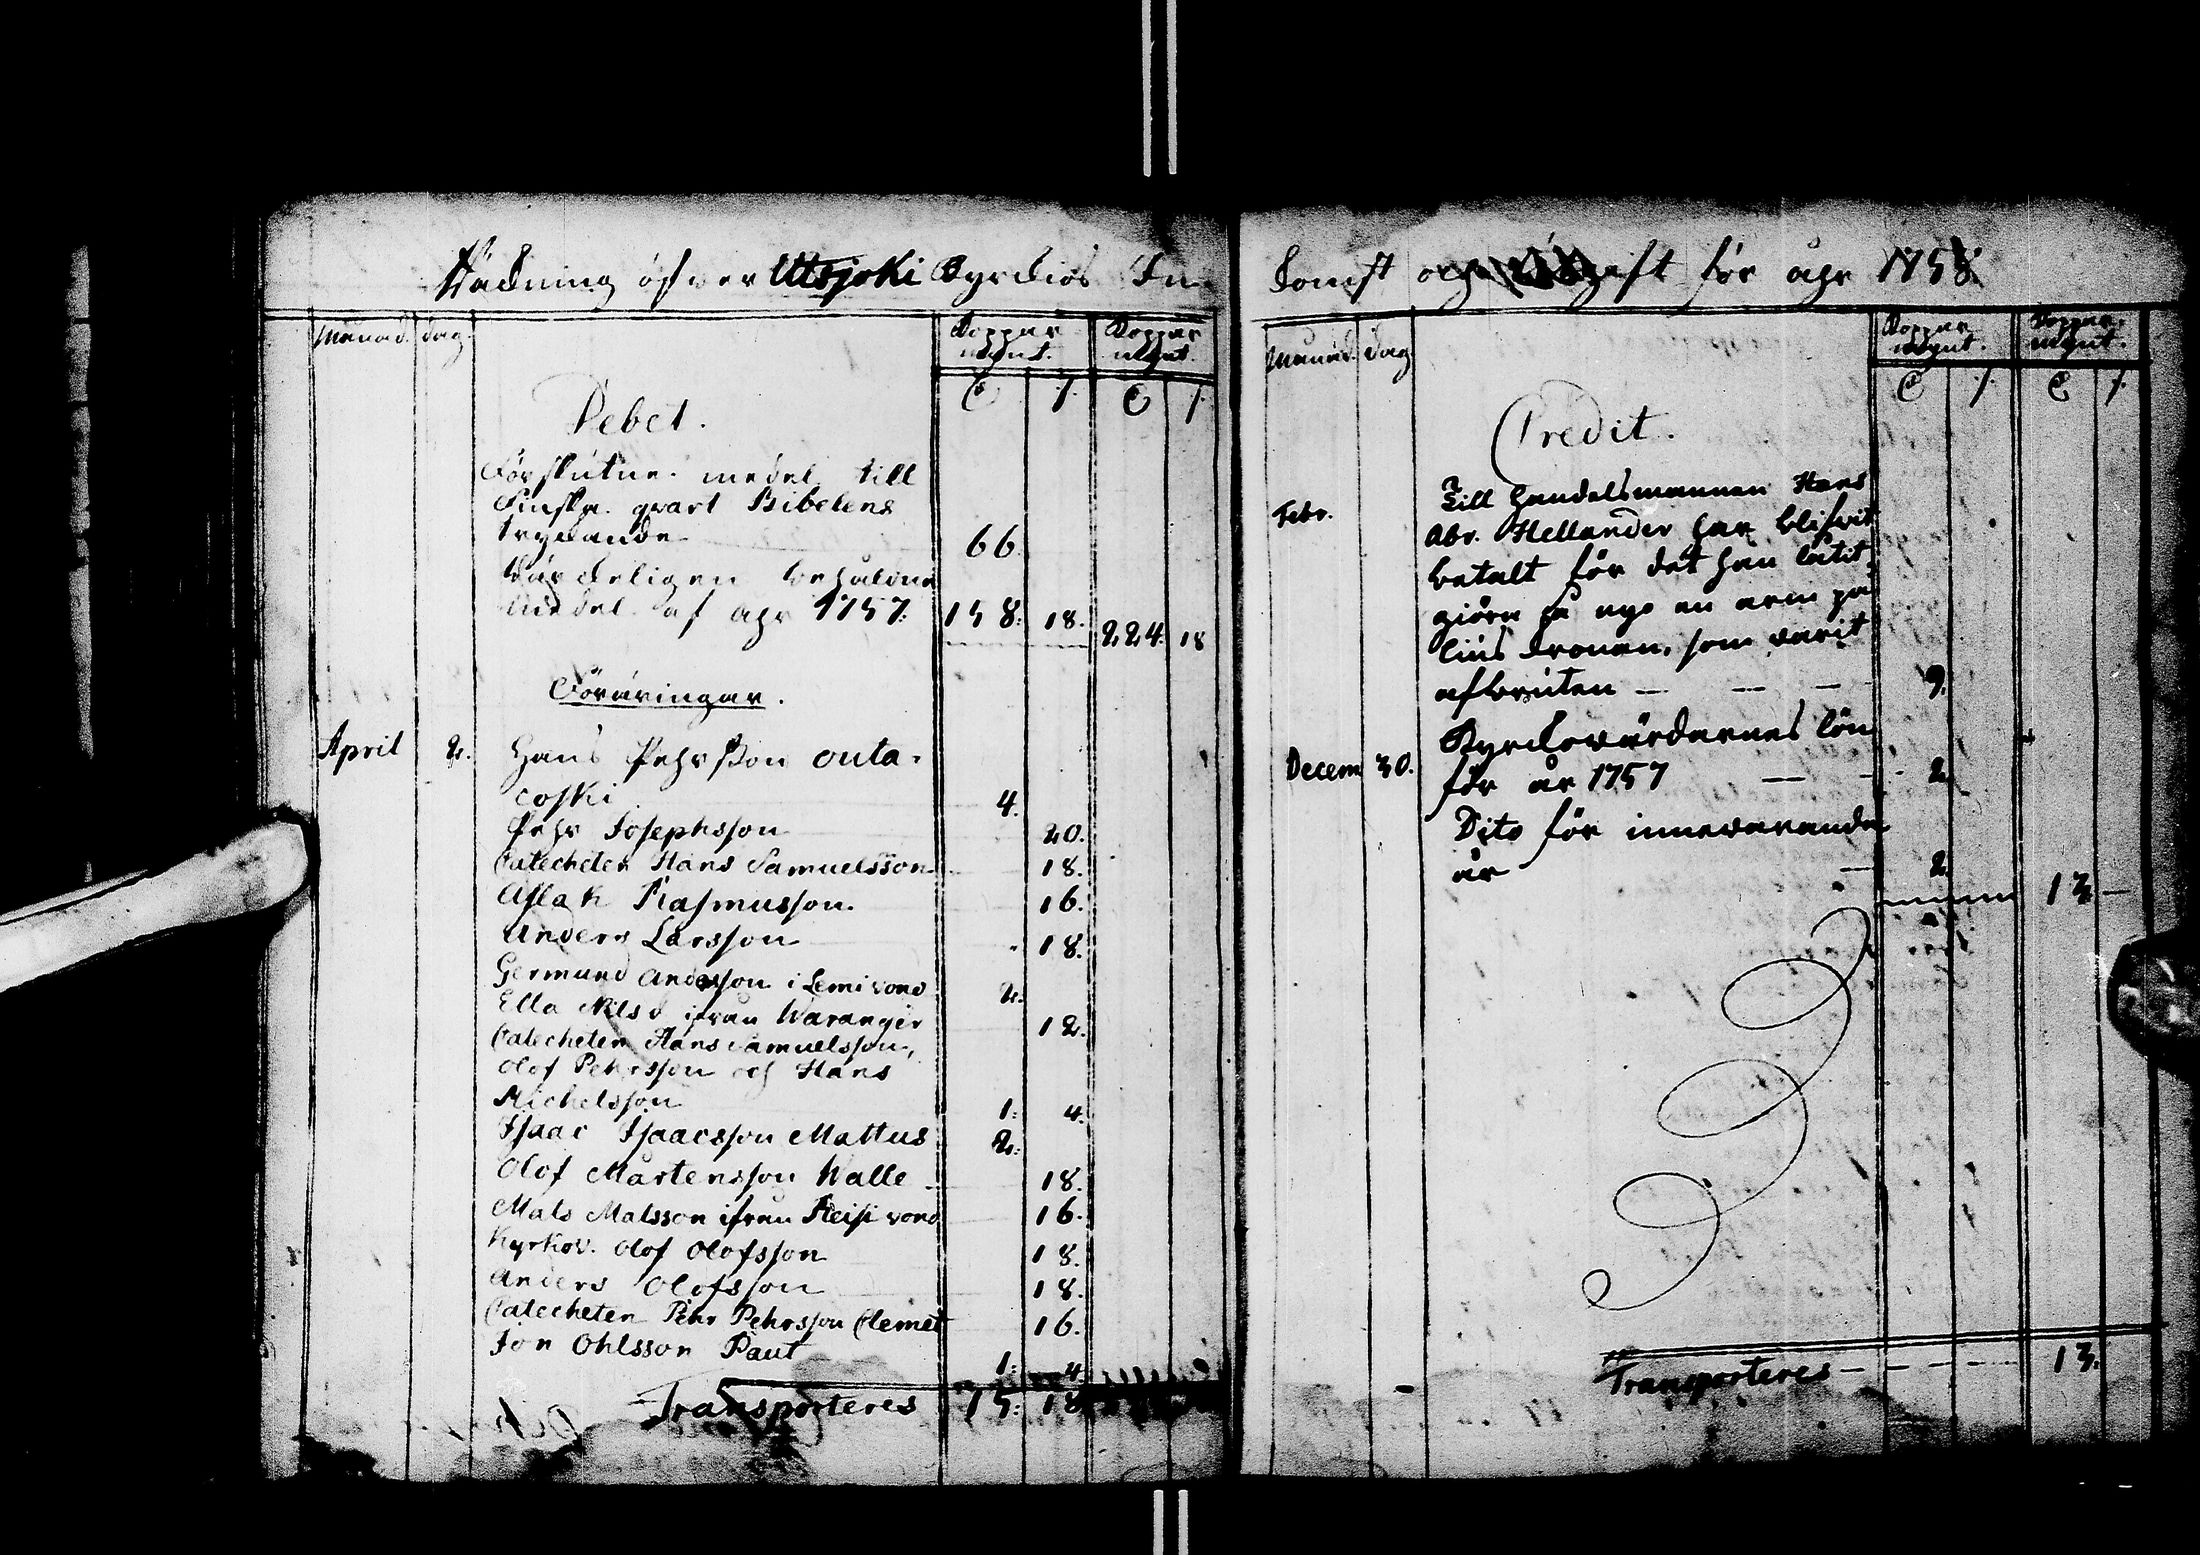 Räckning öfver Utsjoki Kyrckios In
Månad. dag.
Koppar mynt. Koppar mynt.
Debet.
Förskutne medel till
Finska qvart Bibelens
tryckande 66.
behåldne
medel af åhr 1757. 158: 18. 224: 18
Föräringar.
April 2. Hans Pehrsson Outa-
coski 4.
Pehr Josephsson 20.
Catecheten Hans Samuelsson 18.
Aslak Rasmusson. 16.
Anders Larsson 18.
Germund Andersson i Lemivono 2.
Ella Nilsd ifrån Waranger 12.
Catecheten Hans Samuelsson,
Olof Pehrsson och Hans
Michelsson 1: 4.
Isaac Isaacsson Mattus 2:
Olof Mårtensson Walle 18.
Mats Matsson ifrån Reisivono 16.
Kyrkov. Olof Olofsson 18.
Anders Olofsson 18.
Catecheten Pehr Pehrsson Clemet 16.
Jon Ohlsson Paut 1: 4.
Transporteres 15: 18
komst och Utgift för åhr 1758
Månad. dag
Koppar mynt. Koppar mynt.
Credit.
Febr. Till handelsmannen Hans
Abr. Hellander har blifvit
betalt för det han låtit
giöra å nyo en arm på
lius kronan, som varit
afbruten — — — 9.
Decem 30. Kyrckovärdarnes lön
för år 1757 — — 2.
Dito för innevarande
år — 2. 13 —
Transporteres — — — — 13.